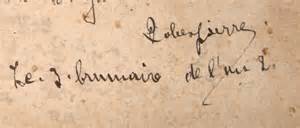 Robespierre
Le 3 brumaire de l'an 2.